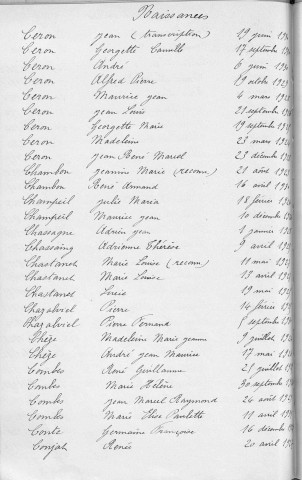 Naissances
Ceron Jean (transcription) 19 juin
Ceron Georgette Camille 17 septemb
Ceron André 6 juin
Ceron Alfred Pierre 19 octob
Ceron Maurice Jean 4 mars
Ceron Jean Louis 21 septemb
Ceron Georgette Marie 19 septemb
Ceron Madeleine 23 mars
Ceron Jean René Marcel 23 décemb
Chambon Jeanine Marie (reconn) 21 août
Chambon René Armand 16 avril
Champeil Julie Maria 18 février
Champeil Maurice Jean 10 décemb
Chassagne Adrien Jean 1 janvier
Chassaing Adrienne Thérèse 9 avril
Chastanet Marie Louise (reconn) 11 mai
Chastanet Marie Louise 13 avril
Chastanet 19 mai
Chazalviel Pierre 14 février
Chazalviel Pierre Fernand 1 septemb
Chèze Madeleine Marie Jeanne 9 juillet
Chèze André Jean Maurice 17 mai
Combes René Guillaume 21 juillet
Combes Marie Hélène 30 septemb
Combes Jean Marcel Raymond 24 août
Combes Marie Elise Paulette 11 avril
Comtz Germaine Françoise 16 décemb
Conjat Renée 20 avril